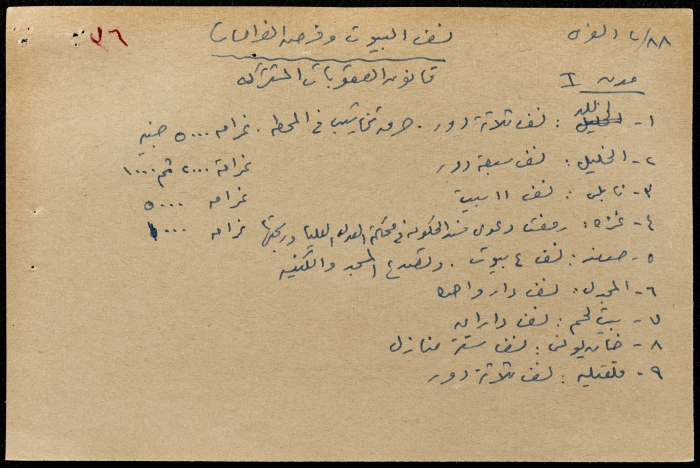 ٨٨/٢ الغزه
نسف البيوت وفرض الغرامات
٢٦
قانون العقوبات المشتركه
مدن I
١- الخليل اللد : نسف ثلاثة دور . حرقة تخاشيب في المحطه . غرامه ٥٠٠٠ جنيه
٢- الخليل : نسف سبعة دور غرامة ٢٠٠٠ ثم ١٠٠٠
٣- نابلس : نسف ١١ بيت غرامه ٥٠٠٠
٤- غزه : رفعت دعوى ضد الحكومه في محكمة العدل العليا وربحتها غرامه ١٠٠٠
٥- صفد : نسف ٤ بيوت . وتصدع المسجد والكنيسه
٦- المجدل : نسف دار واحده
٧- بيت لحم : نسف داران
٨- خان يونس : نسف ستة منازل
٩- قلقيليه : نسف ثلاثة دور